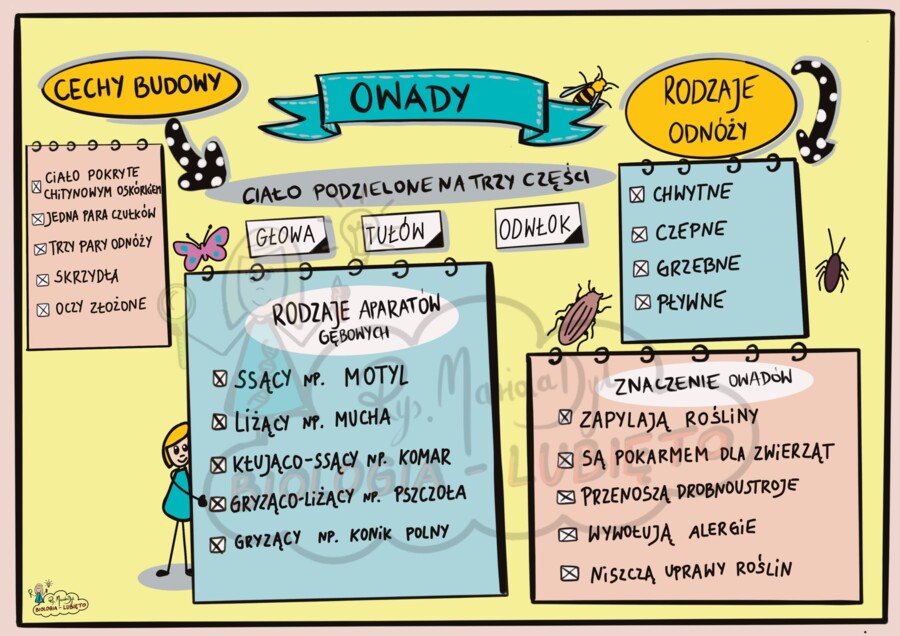 OWADY
CECHY BUDOWY
CIAŁO POKRYTE
CHITYNOWYM OSKÓRKIEM
JEDNA PARA CZUŁKÓW
TRZY PARY ODNÓŻY
SKRZYDŁA
OCZY ZŁOŻONE
CIAŁO PODZIELONE NA TRZY CZĘŚCI
GŁOWA
TUŁÓW
ODWŁOK
RODZAJE
ODNÓŻY
CHWYTNE
CZEPNE
GRZEBNE
PŁYWNE
RODZAJE APARATÓW
GĘBOWYCH
SSĄCY NP. MOTYL
LIŻĄCY NP. MUCHA
KŁUJĄCO-SSĄCY NP. KOMAR
GRYZĄCO-LIŻĄCY NP. PSZCZOŁA
GRYZĄCY NP. KONIK POLNY
ZNACZENIE OWADÓW
ZAPYLAJĄ ROŚLINY
SĄ POKARMEM DLA ZWIERZĄT
PRZENOSZĄ DROBNOUSTROJE
WYWOŁUJĄ ALERGIE
NISZCZĄ UPRAWY ROŚLIN
Rys.
BIOLOGIA - LUBIĘTO
BIOLOGIA - LUBIĘTO